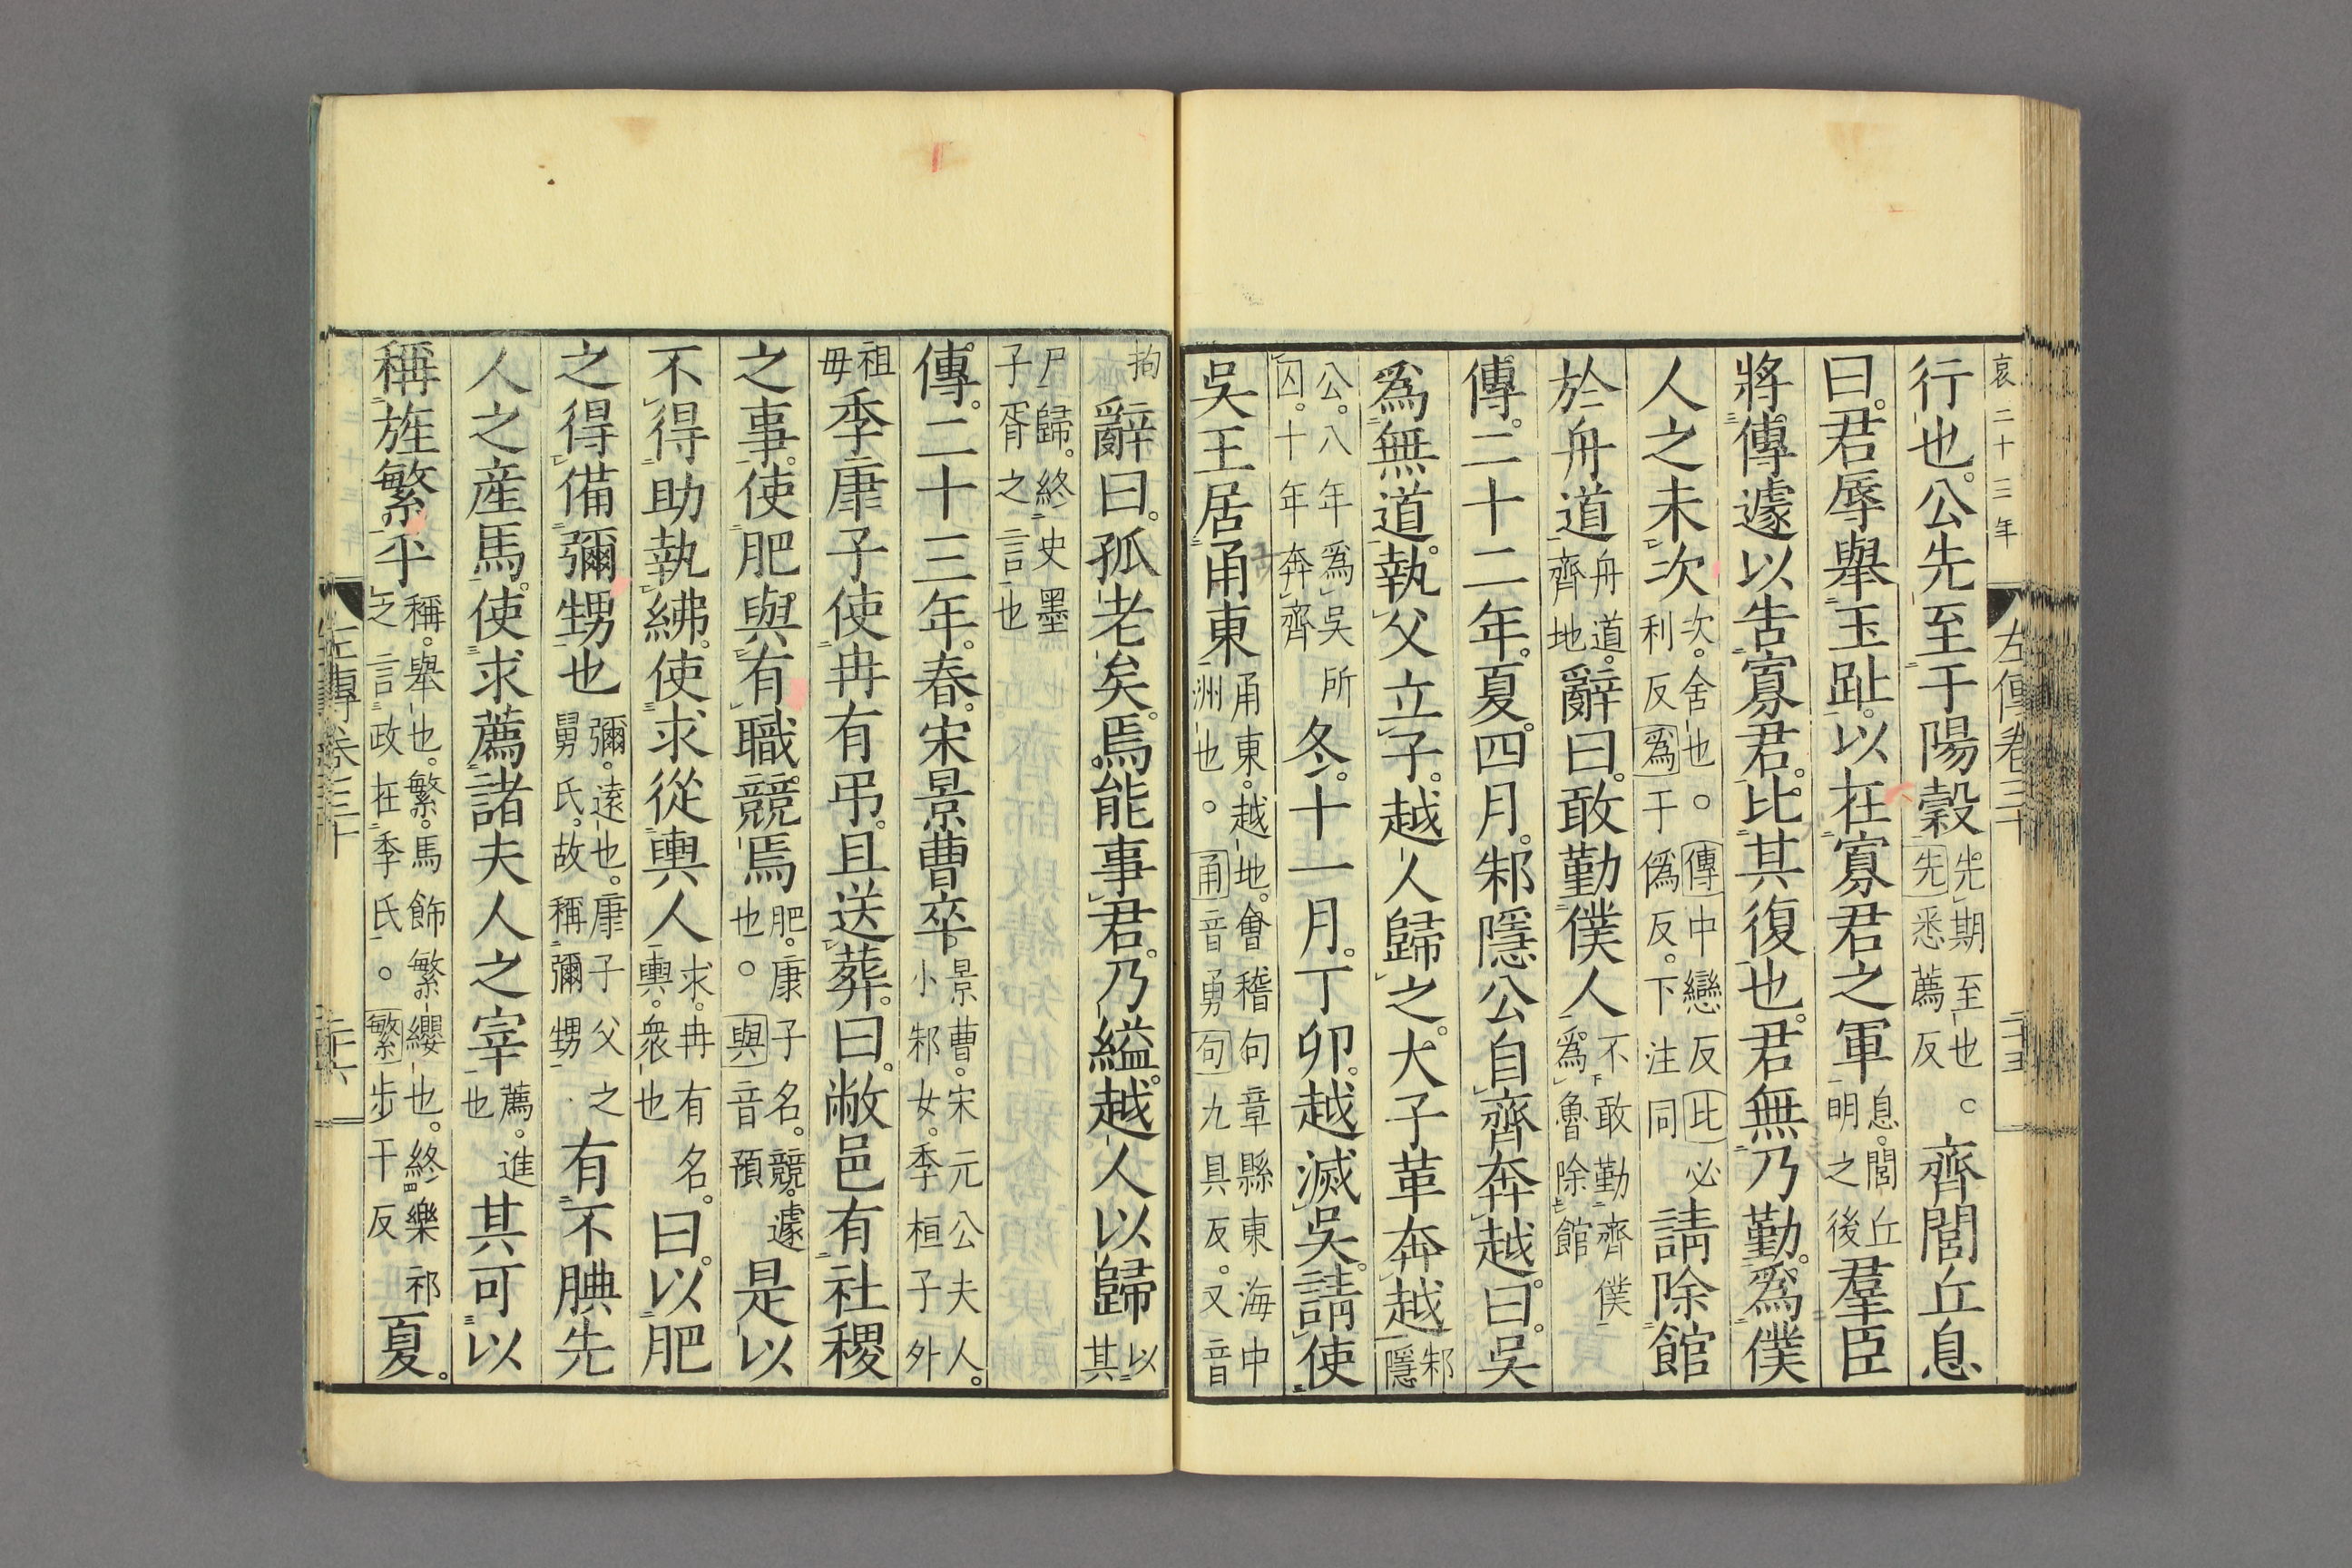 哀二十三年
左傳卷三十
二十五
行也。公先至于陽穀先期至也。先悉薦反。齊閭丘息
曰。君辱舉玉趾。以在寡君之軍息。閭丘明之後羣臣
將傳遽以吿寡君。比其復也。君無乃勤。爲僕
人之未次次。舍也。傳中戀反比必利反爲于僞反。下注同請除館
於舟道舟道。齊地辭曰。敢勤僕人不敢勤齊僕爲魯除館
傳。二十二年。夏。四月。邾隱公自齊奔越。曰。吳
爲無道。執父立子。越人歸之。大子革奔越邾隱
公。八年爲吳所囚。十年奔齊冬。十一月。丁卯。越滅吳。請使
吳王居甬東甬東。越地。會稽句章縣東海中洲也。甬音勇句九具反。又音
拘辭曰。孤老矣。焉能事君。乃縊。越人以歸以其
尸歸。終史墨子胥之言也
傳。二十三年。春。宋景曹卒。景曹。宋元公夫人。小邾女。季桓子外
祖母季康子使冉有弔。且送葬。曰。敝邑有社稷
之事。使肥與有職競焉。肥。康子名。競。遽也。與音預是以
不得助執紼。使求從輿人求。冉有名。輿。衆也曰。以肥
之得備彌甥也彌。遠也。康子父之舅氏。故稱彌甥有不腆先
人之産馬。使求薦諸夫人之宰薦。進也其可以
稱旌繁乎稱。舉也。繁。馬飾繁纓也。終樂祁之言政在季氏。繁步干反夏。
左傳卷三十
二十六